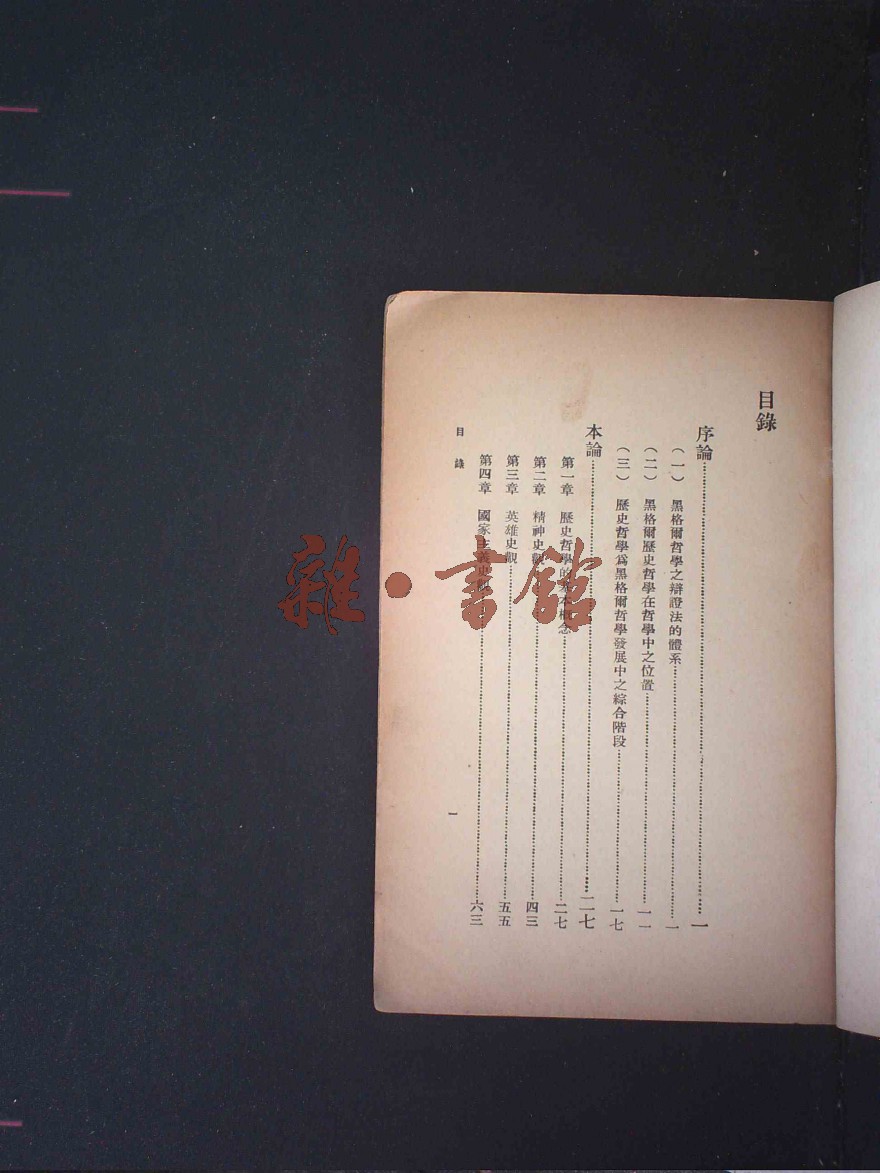 目錄
序論……一
（一）　黑格爾哲學之辯證法的體系……一
（二）　黑格爾歷史哲學在哲學中之位置……一一
（三）　歷史哲學爲黑格爾哲學發展中之綜合階段……一七
本論……二七
第一章　歷史哲學的基本概念……二七
第二章　精神史觀……四三
第三章　英雄史觀……五五
第四章　國家主義史觀……六三
目錄
一
雜·書館